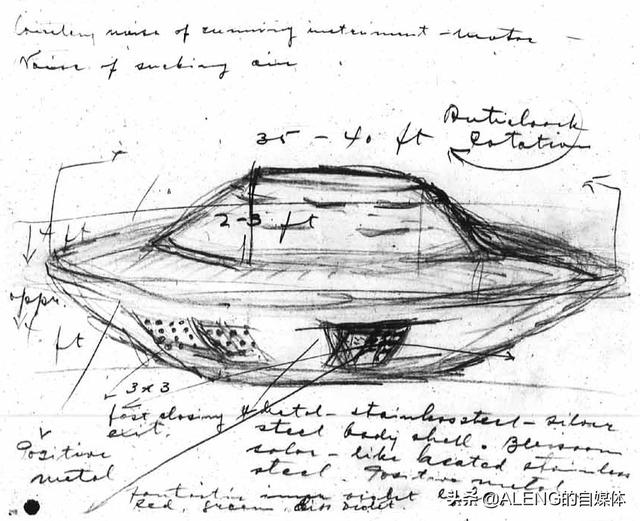 noise of running instrument - motor -
Noise of sucking air
Anticlock
rotation
35 - 40 ft
2-3 ft
4 ft
appr.
4 ft
3 x 3
fast closing
exit.
Positive
metal
metal - stainless steel - silver
steel body shell.
color - like heated stainless
steel. Positive metal
Fantastic inner violet
Red, green, violet.
头条@ALENG的自媒体